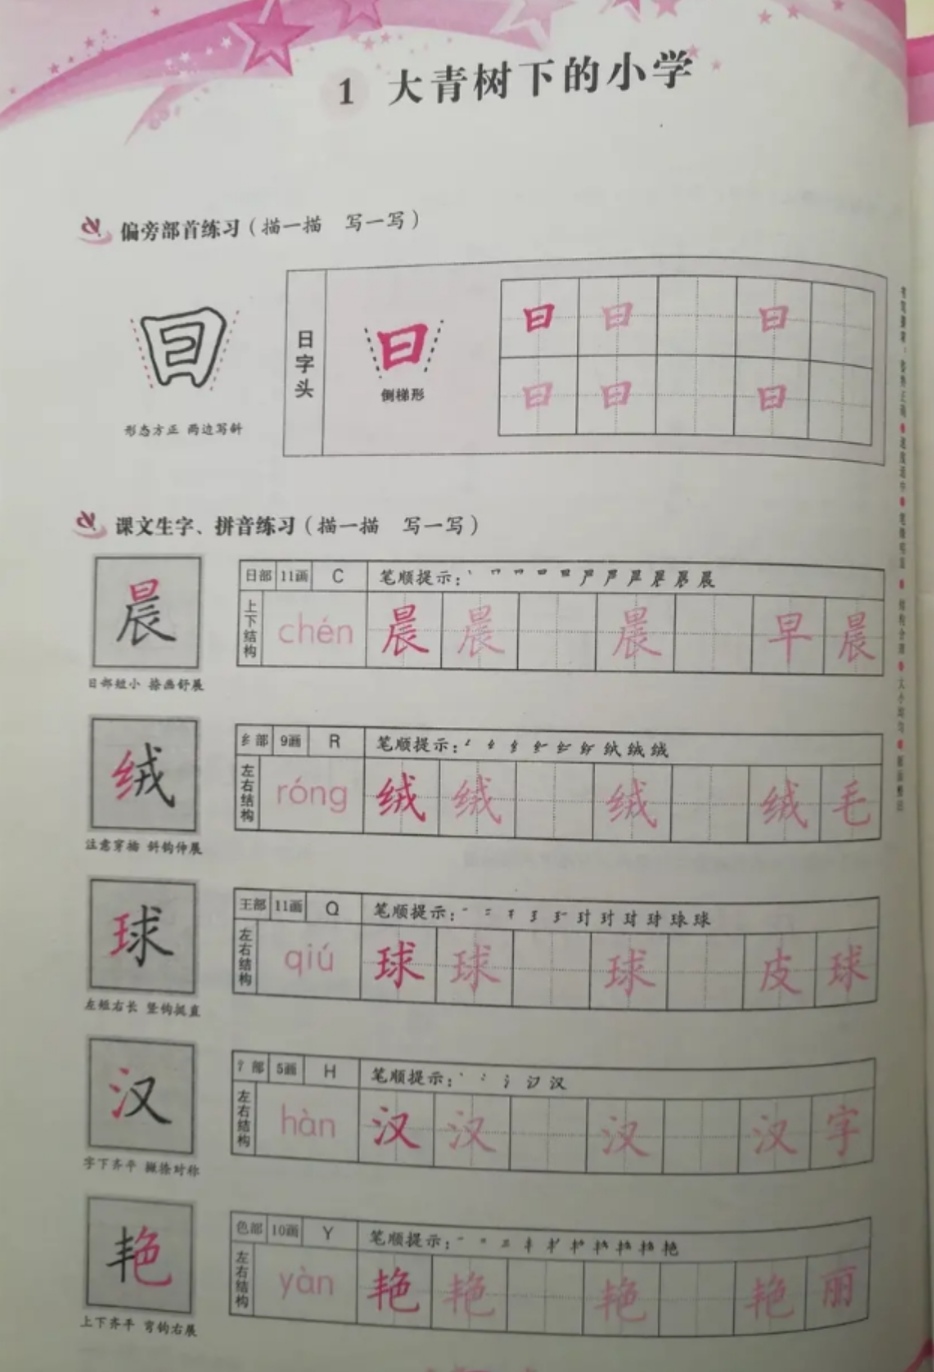 1 大青树下的小学
偏旁部首练习(描一描 写一写)
日字头
曰 曰 曰 曰
倒梯形
曰 曰 曰
形态方正 两边写斜
课文生字、拼音练习(描一描 写一写)
晨
日部 11画 C 笔顺提示:
上下结构 chén 晨 晨 晨 早 晨
日部短小 捺画舒展
绒
纟部 9画 R 笔顺提示:
左右结构 róng 绒 绒 绒 绒 毛
注意穿插 斜钩伸展
球
王部 11画 Q 笔顺提示:
左右结构 qiú 球 球 球 皮 球
左短右长 竖钩挺直
汉
氵部 5画 H 笔顺提示:
左右结构 hàn 汉 汉 汉 汉 字
字下齐平 撇捺对称
艳
色部 10画 Y 笔顺提示:
左右结构 yàn 艳 艳 艳 艳 丽
上下齐平 弯钩右展